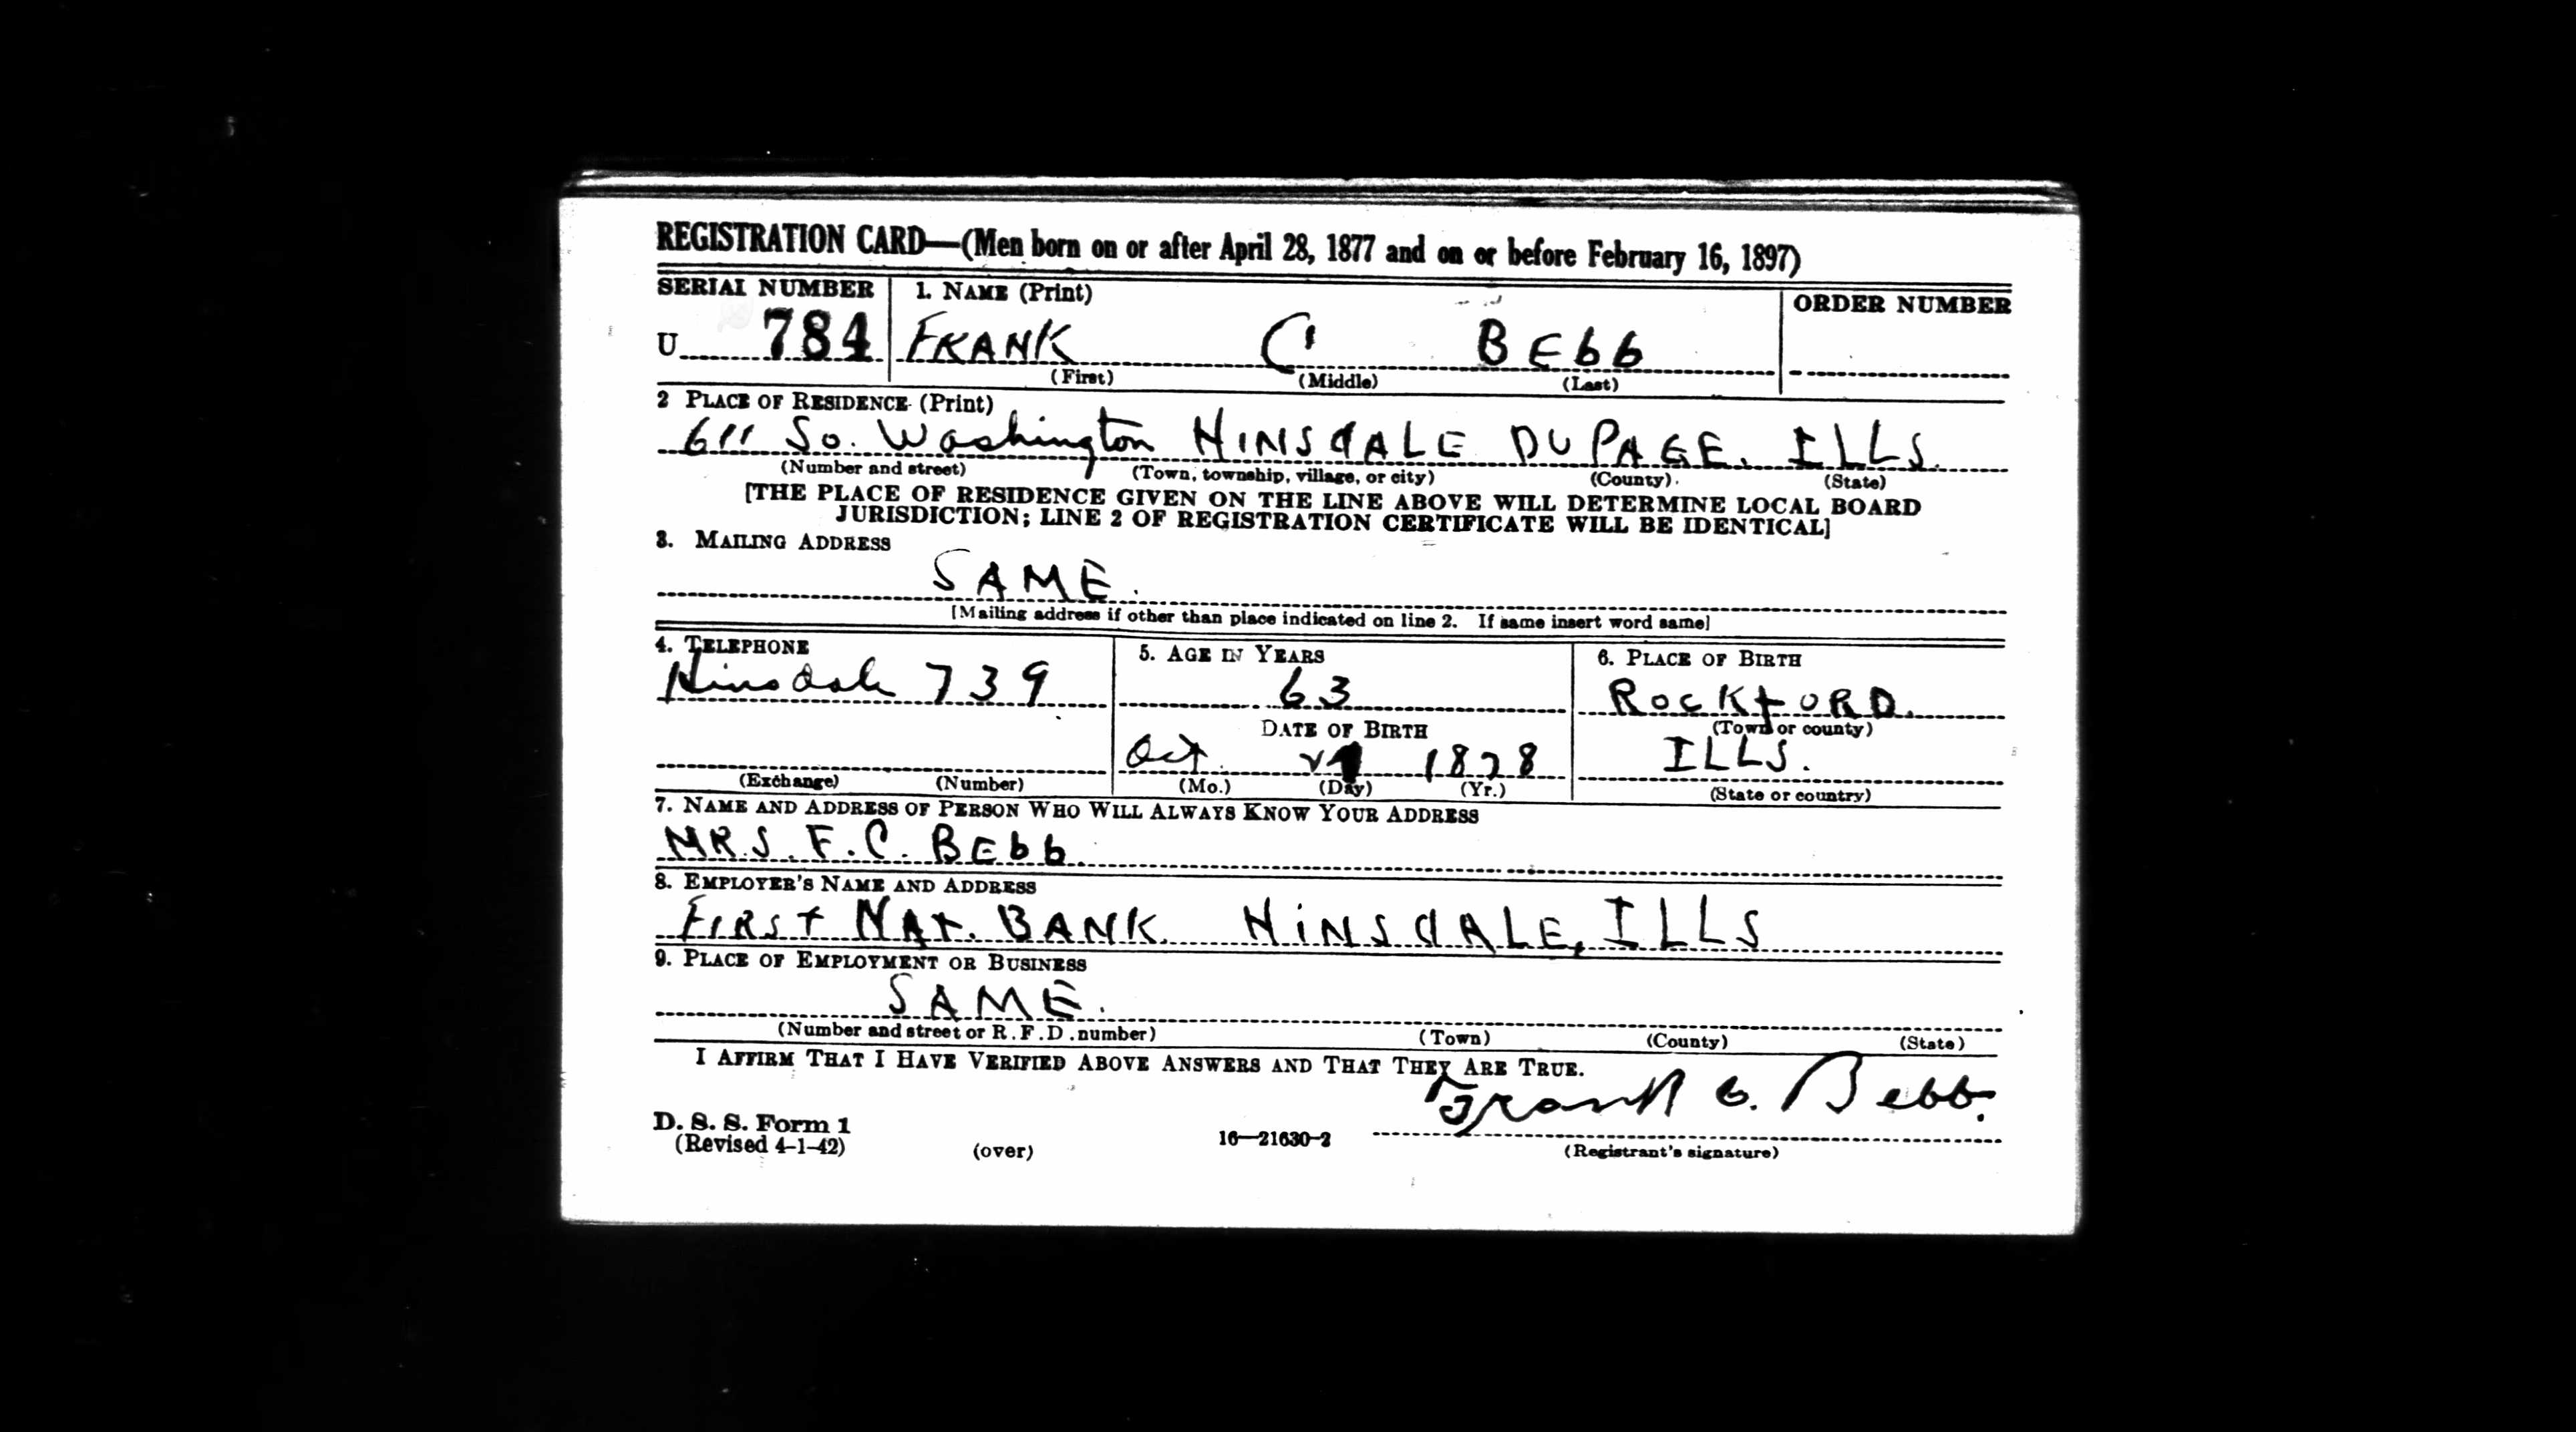 REGISTRATION CARD—(Men born on or after April 28, 1877 and on or before February 16, 1897)
SERIAL NUMBER 1. NAME (Print) ORDER NUMBER
U 784 FRANK C BEbb
(First) (Middle) (Last)
2 PLACE OF RESIDENCE (Print)
611 So. Washington HINSdALE DUPAGE. ILLS.
(Number and street) (Town, township, village, or city) (County) (State)
[THE PLACE OF RESIDENCE GIVEN ON THE LINE ABOVE WILL DETERMINE LOCAL BOARD
JURISDICTION; LINE 2 OF REGISTRATION CERTIFICATE WILL BE IDENTICAL]
3. MAILING ADDRESS
SAME.
[Mailing address if other than place indicated on line 2. If same insert word same]
4. TELEPHONE 5. AGE IN YEARS 6. PLACE OF BIRTH
Hinsdale 739 63 ROCKfORD.
DATE OF BIRTH (Town or county)
Oct. 1878 ILLS.
(Exchange) (Number) (Mo.) (Day) (Yr.) (State or country)
7. NAME AND ADDRESS OF PERSON WHO WILL ALWAYS KNOW YOUR ADDRESS
MRS. F.C. BEbb.
8. EMPLOYER'S NAME AND ADDRESS
FIRSt NAt. BANK HiNSdALE, ILLS
9. PLACE OF EMPLOYMENT OR BUSINESS
SAME.
(Number and street or R.F.D. number) (Town) (County) (State)
I AFFIRM THAT I HAVE VERIFIED ABOVE ANSWERS AND THAT THEY ARE TRUE.
Frank C. Bebb.
D. S. S. Form 1
(Revised 4-1-42) (over) 16—21630-2 (Registrant's signature)